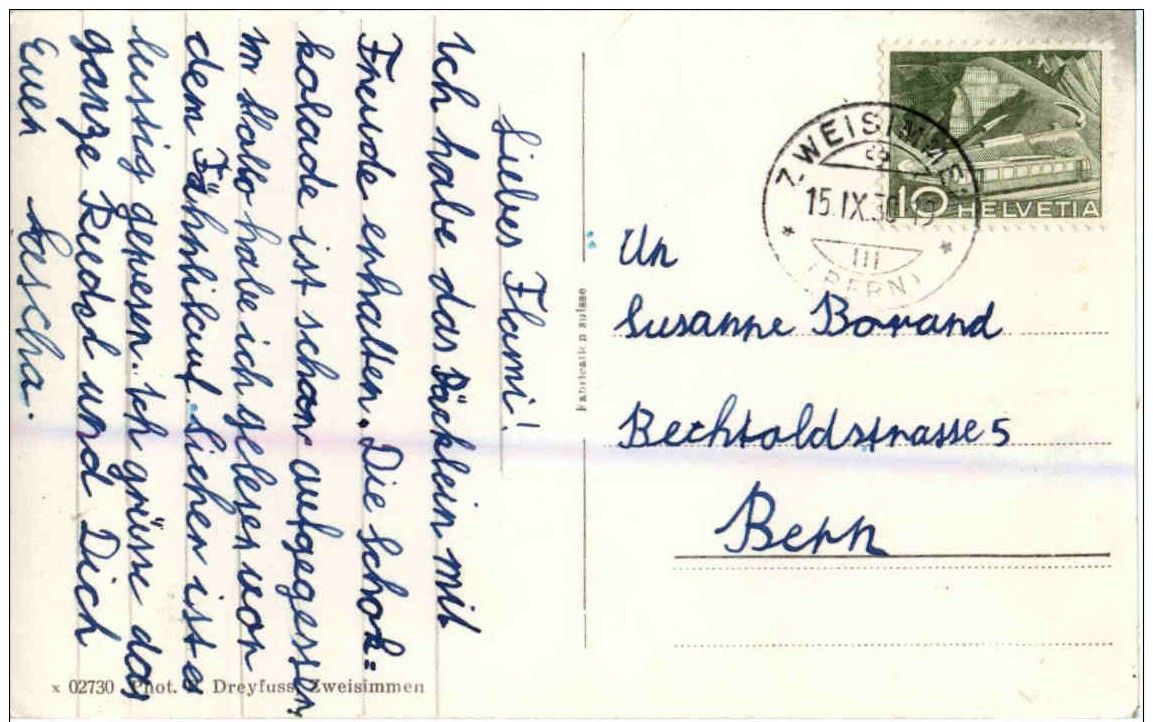 Liebes Flumi!
Ich habe das Päcklein mit
Freude erhalten. Die Schok=
kolade ist schon aufgegessen.
Im Hallo habe ich gelesen von
dem Fähnlilauf. Sicher ist es
lustig gewesen. Ich grüsse das
ganze Rudel und Dich
Euer Sascha.
ZWEISIMMEN
15.IX.
III
(BERN)
10 HELVETIA
An
Susanne Borand
Bechtoldstrasse 5
Bern
Fabrication suisse
x 02730 Phot. Dreyfuss, Zweisimmen